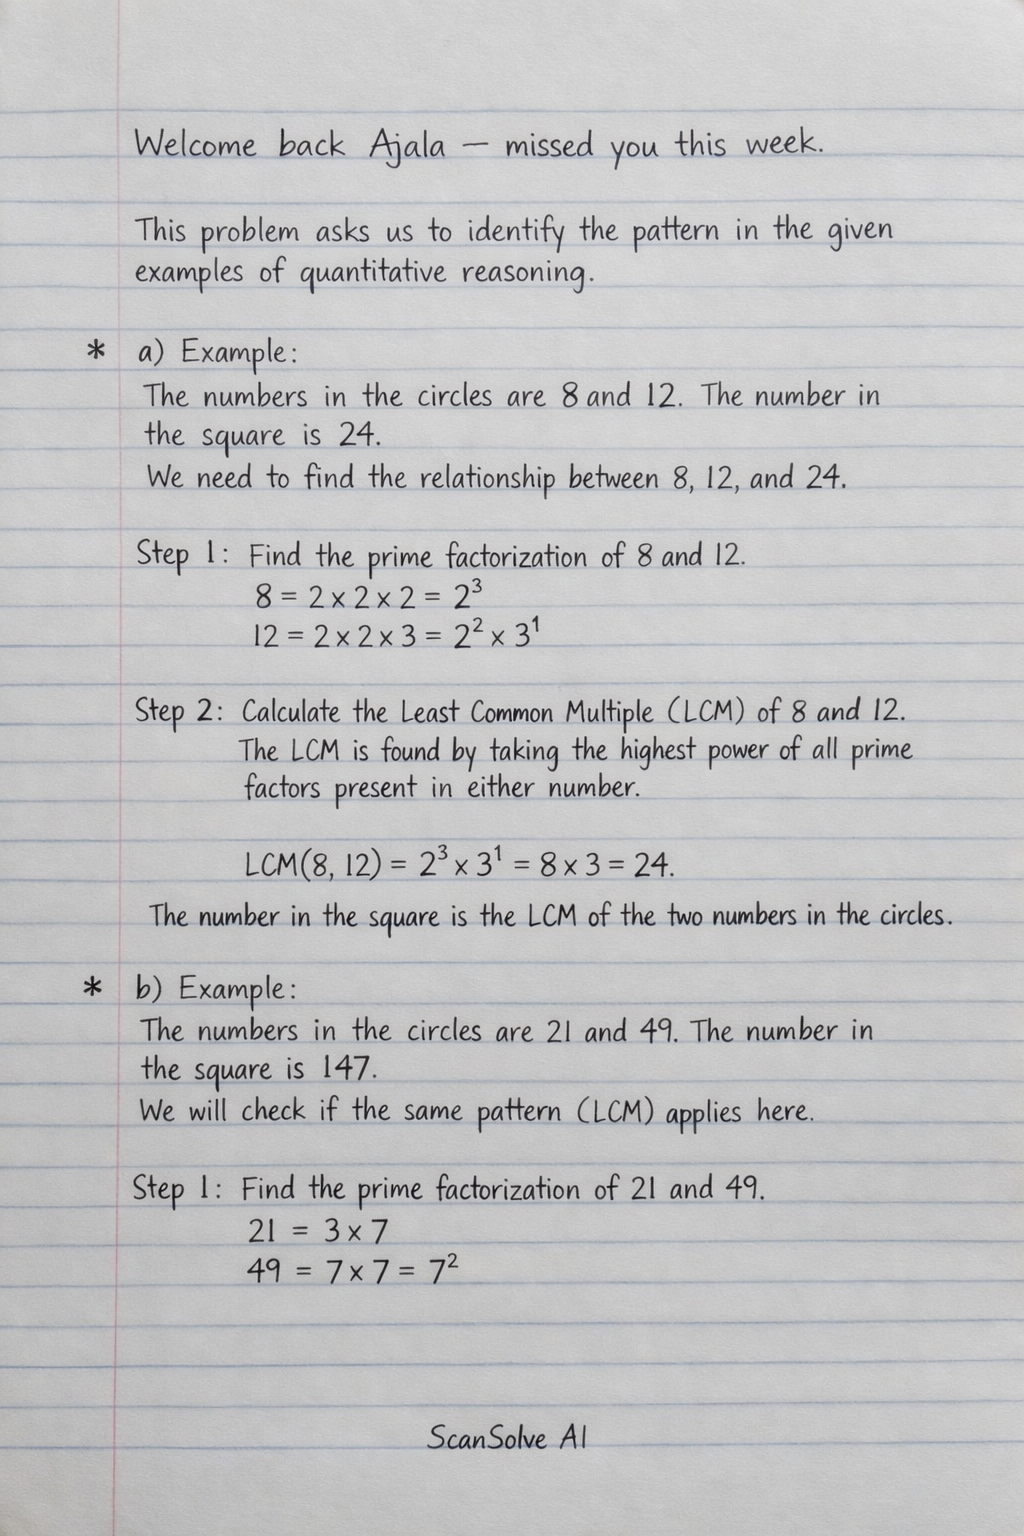 Welcome back Ajala — missed you this week.
This problem asks us to identify the pattern in the given
examples of quantitative reasoning.
* a) Example:
The numbers in the circles are 8 and 12. The number in
the square is 24.
We need to find the relationship between 8, 12, and 24.
Step 1: Find the prime factorization of 8 and 12.
8 = 2 × 2 × 2 = 2³
12 = 2 × 2 × 3 = 2² × 3¹
Step 2: Calculate the Least Common Multiple (LCM) of 8 and 12.
The LCM is found by taking the highest power of all prime
factors present in either number.
LCM(8, 12) = 2³ × 3¹ = 8 × 3 = 24.
The number in the square is the LCM of the two numbers in the circles.
* b) Example:
The numbers in the circles are 21 and 49. The number in
the square is 147.
We will check if the same pattern (LCM) applies here.
Step 1: Find the prime factorization of 21 and 49.
21 = 3 × 7
49 = 7 × 7 = 7²
ScanSolve AI